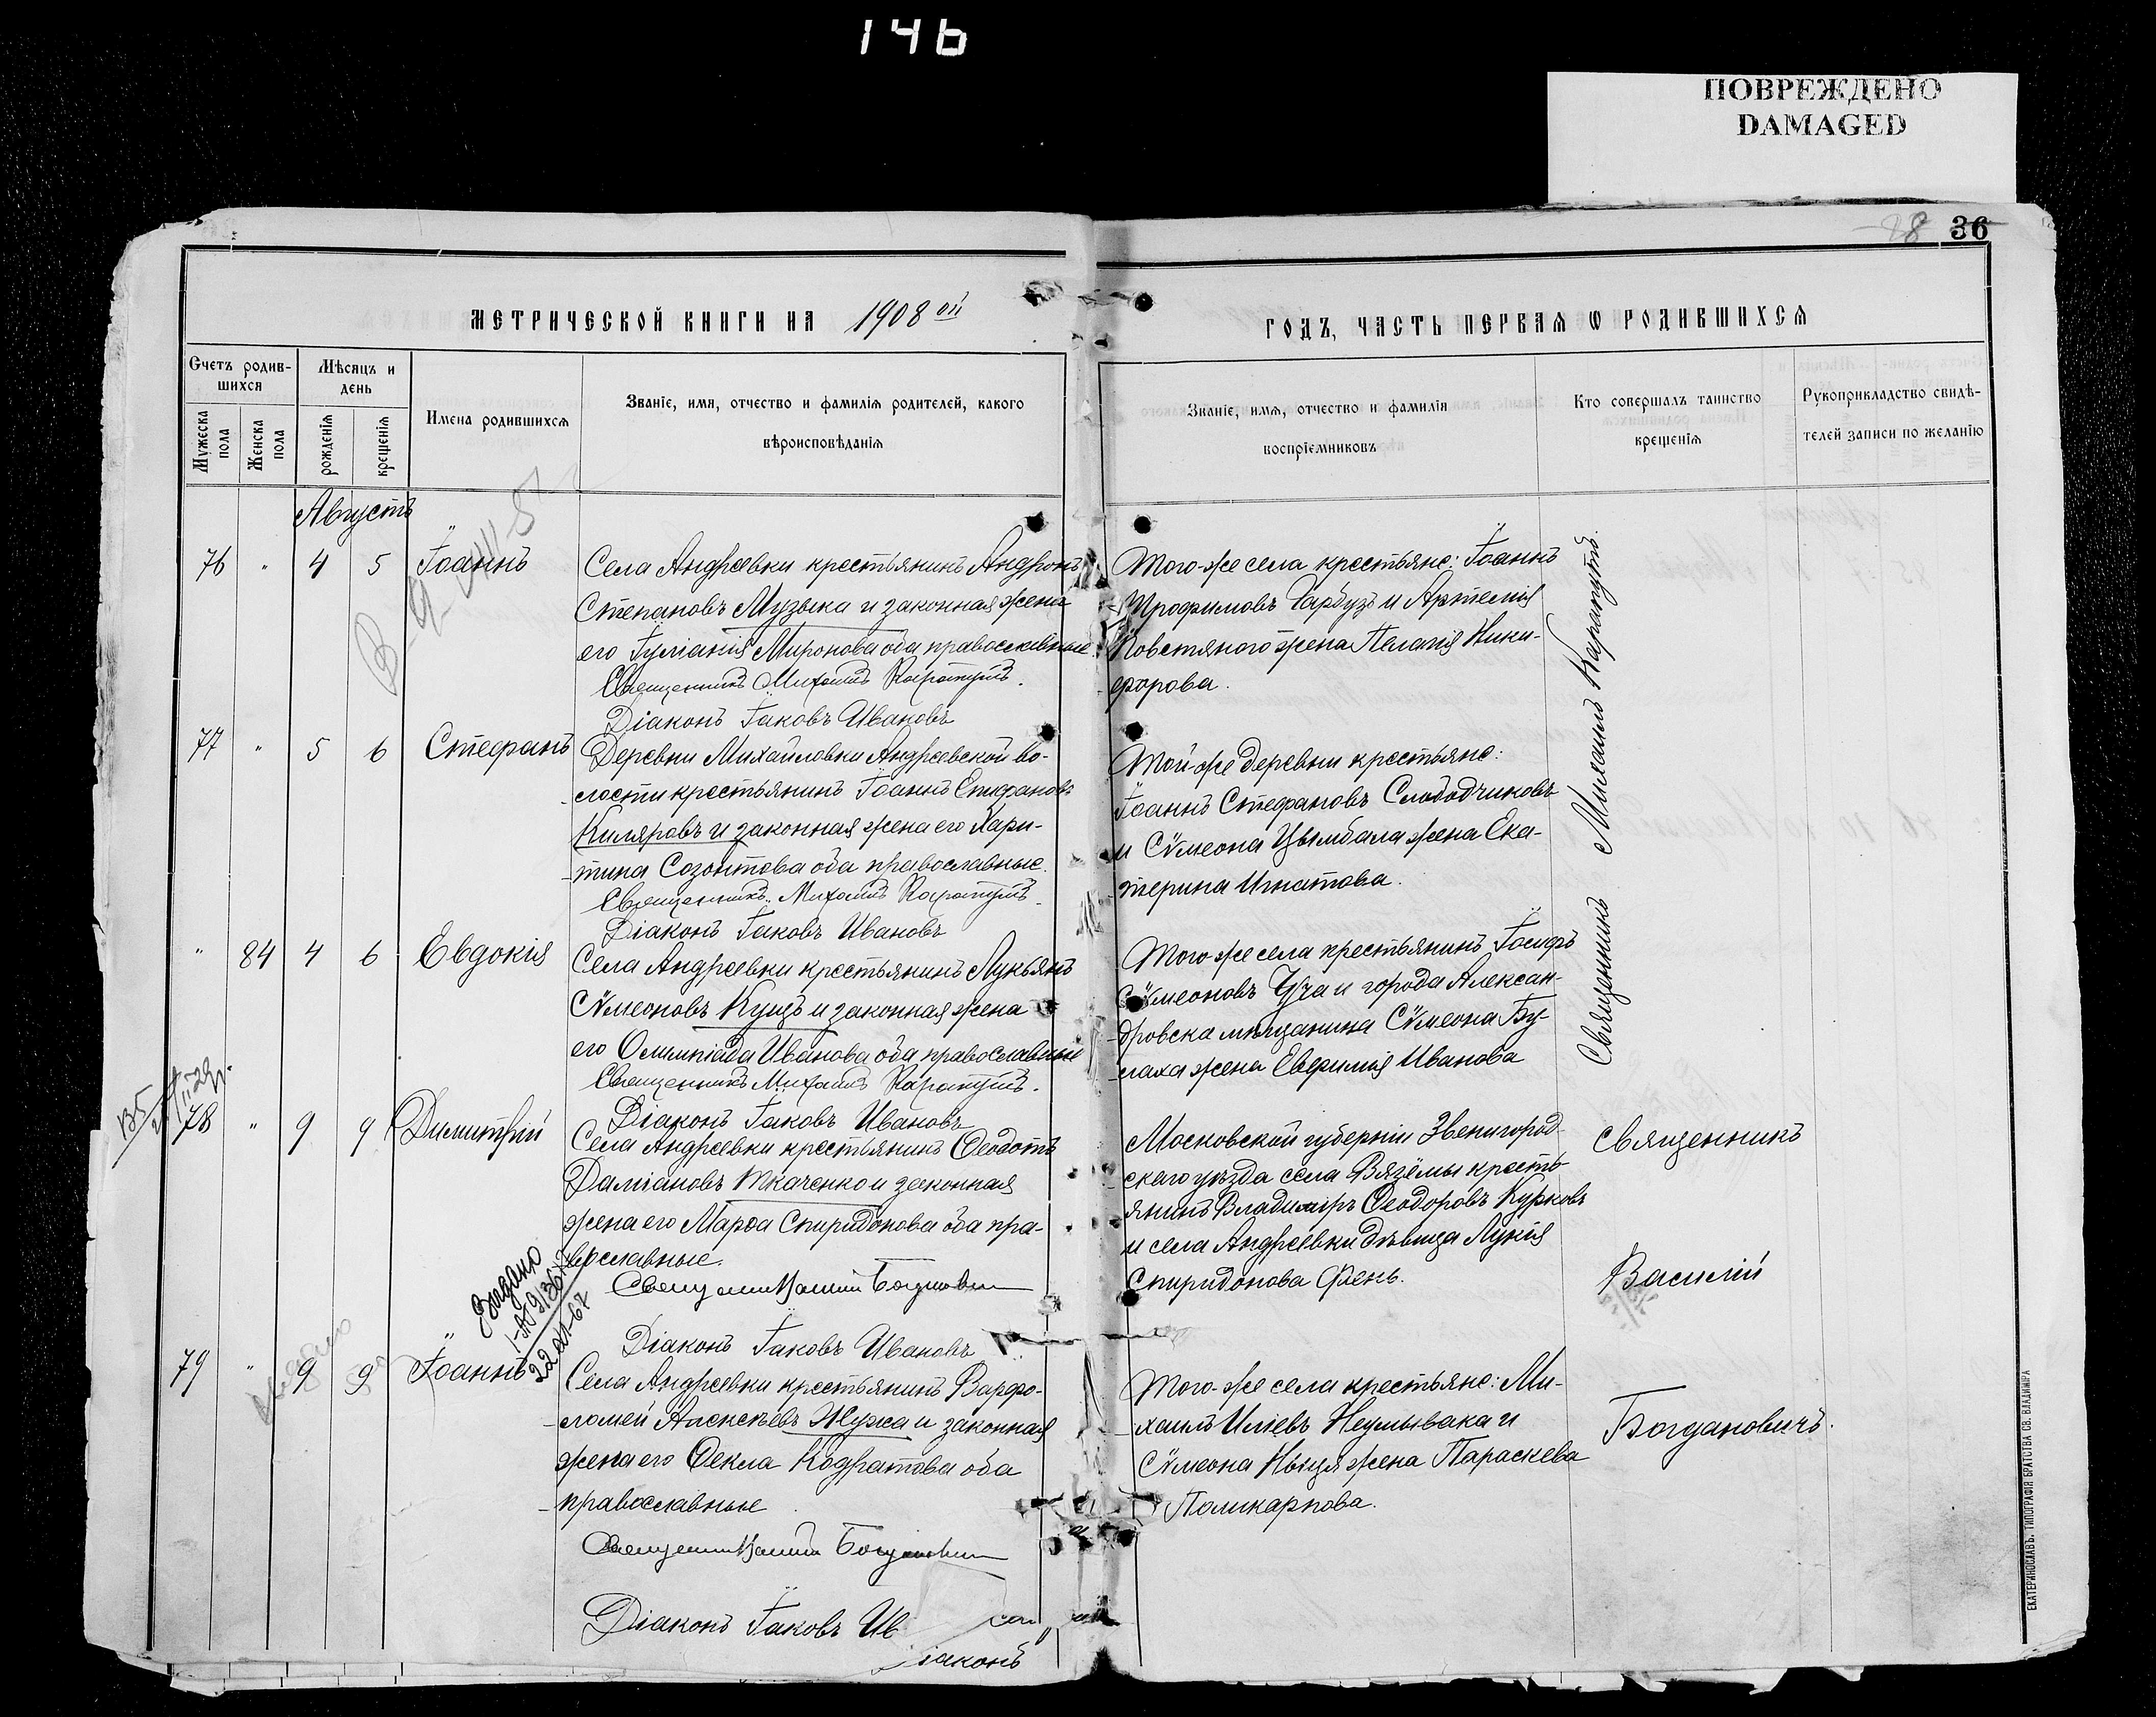 146
ПОВРЕЖДЕНО
DAMAGED
28 36
МЕТРИЧЕСКОЙ КНИГИ НА 1908 ой
Счетъ родившихся
Мѣсяцъ и день
Мужеска пола
Женска пола
рожденія
крещенія
Имена родившихся
Званіе, имя, отчество и фамилія родителей, какого
вѣроисповѣданія
Августъ
76 " 4 5 Іоаннъ
Села Андреевки крестьянинъ Андронъ
Степановъ Музыка и законная жена
его Іуліанія Миронова оба православные
Священникъ Михаилъ Карапутъ.
Діаконъ Іаковъ Ивановъ
77 " 5 6 Стефанъ
Деревни Михайловки Андреевской во-
лости крестьянинъ Іоаннъ Епифановъ
Киляровъ и законная жена его Хари-
тина Созонтова оба православные.
Священникъ Михаилъ Карапутъ.
Діаконъ Іаковъ Ивановъ
" 84 4 6 Евдокія
Села Андреевки крестьянинъ Лукьянъ
Сѵмеоновъ Куцъ и законная жена
его Олимпіада Иванова оба православные
Священникъ Михаилъ Карапутъ.
Діаконъ Іаковъ Ивановъ
78 " 9 9 Димитрій
Села Андреевки крестьянинъ Ѳеодотъ
Даміановъ Ткаченко и законная
жена его Марѳа Спиридонова оба пра-
вославные.
Священникъ Василій Богдановичъ
Діаконъ Іаковъ Ивановъ
79 " 9 9 Іоаннъ
Села Андреевки крестьянинъ Варфо-
ломей Алексѣевъ Жужа и законная
жена его Ѳекла Кодратова оба
православные
Священникъ Василій Богдановичъ
Діаконъ Іаковъ Ив
іаконъ
ГОДЪ, ЧАСТЬ ПЕРВАЯ Ѡ РОДИВШИХСЯ
Званіе, имя, отчество и фамилія
воспріемниковъ
Кто совершалъ таинство
крещенія
Рукоприкладство свидѣ-
телей записи по желанію
Того-же села крестьяне: Іоаннъ
Трофимовъ Гарбузъ и Артемія
Ковстяного жена Пелагія Ники-
форова.
Той-же деревни крестьяне:
Іоаннъ Стефановъ Слободчиковъ
и Сѵмеона Цымбала жена Ека-
терина Игнатова.
Того-же села крестьянинъ Іосифъ
Сѵмеоновъ Куча и города Алексан-
дровска мѣщанина Сѵмеона Бу-
лаха жена Евфимія Иванова
Священникъ Михаилъ Карапутъ.
Московской губерніи Звенигород-
скаго уѣзда села Вязёмы кресть-
янинъ Владиміръ Ѳеодоровъ Курковъ
и села Андреевки дѣвица Лукія
Спиридонова Фень.
Того-же села крестьяне: Ми-
хаилъ Иліевъ Неумывака и
Сѵмеона Ныця жена Параскева
Поликарпова.
Священникъ
Василій
Богдановичъ.
ЕКАТЕРИНОСЛАВЪ. ТИПОГРАФІЯ БРАТСТВА СВ. ВЛАДИМІРА